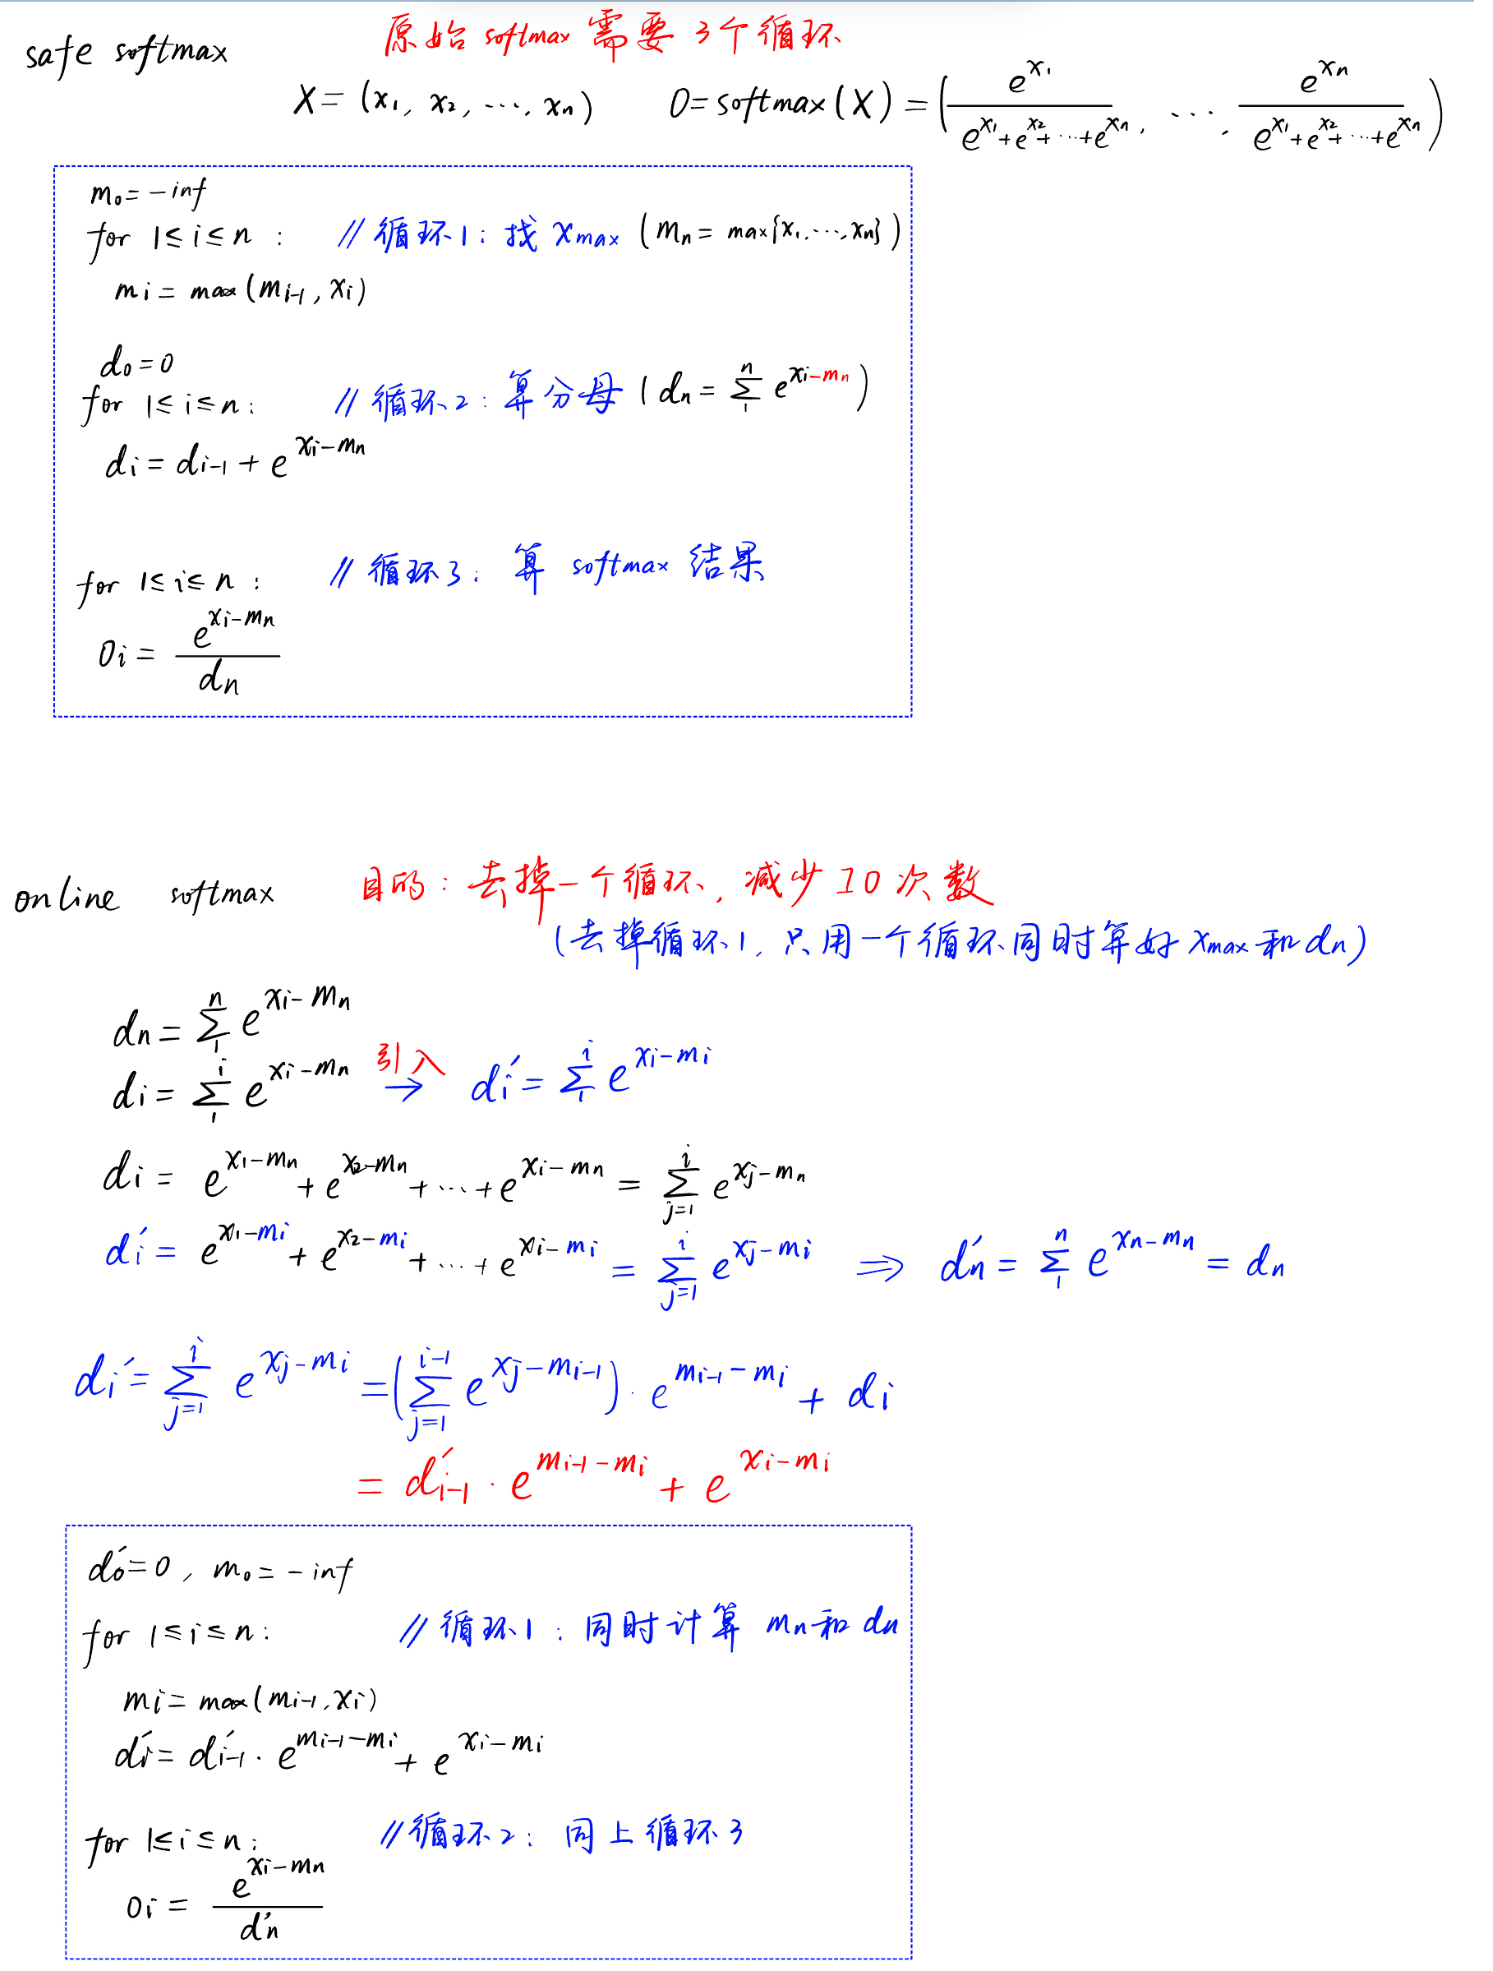 safe softmax 原始 softmax 需要 3个循环
X = (x₁, x₂, ⋯, xₙ) O = softmax(X) = (e^{x₁}/(e^{x₁}+e^{x₂}+⋯+e^{xₙ}), ⋯, e^{xₙ}/(e^{x₁}+e^{x₂}+⋯+e^{xₙ}))
m₀ = -inf
for 1≤i≤n: // 循环1: 找 x_{max} (mₙ = max{x₁, ⋯, xₙ})
m_i = max(m_{i-1}, x_i)
d₀ = 0
for 1≤i≤n: // 循环2: 算分母 (dₙ = Σ_{1}^{n} e^{x_i-mₙ})
d_i = d_{i-1} + e^{x_i-mₙ}
for 1≤i≤n: // 循环3: 算 softmax 结果
O_i = e^{x_i-mₙ}/dₙ
online softmax 目的: 去掉一个循环, 减少IO次数
(去掉循环1, 只用一个循环同时算好 x_{max} 和 dₙ)
dₙ = Σ_{1}^{n} e^{x_i-mₙ}
d_i = Σ_{1}^{i} e^{x_i-mₙ} 引入 → d_i' = Σ_{1}^{i} e^{x_i-m_i}
d_i = e^{x₁-mₙ} + e^{x₂-mₙ} + ⋯ + e^{x_i-mₙ} = Σ_{j=1}^{i} e^{x_j-mₙ}
d_i' = e^{x₁-m_i} + e^{x₂-m_i} + ⋯ + e^{x_i-m_i} = Σ_{j=1}^{i} e^{x_j-m_i} ⇒ dₙ' = Σ_{1}^{n} e^{xₙ-mₙ} = dₙ
d_i' = Σ_{j=1}^{i} e^{x_j-m_i} = (Σ_{j=1}^{i-1} e^{x_j-m_{i-1}}) · e^{m_{i-1}-m_i} + d_i
= d_{i-1}' · e^{m_{i-1}-m_i} + e^{x_i-m_i}
d₀' = 0, m₀ = -inf
for 1≤i≤n: // 循环1: 同时计算 mₙ和 dₙ
m_i = max(m_{i-1}, x_i)
d_i' = d_{i-1}' · e^{m_{i-1}-m_i} + e^{x_i-m_i}
for 1≤i≤n: // 循环2: 同上循环3
O_i = e^{x_i-mₙ}/dₙ'